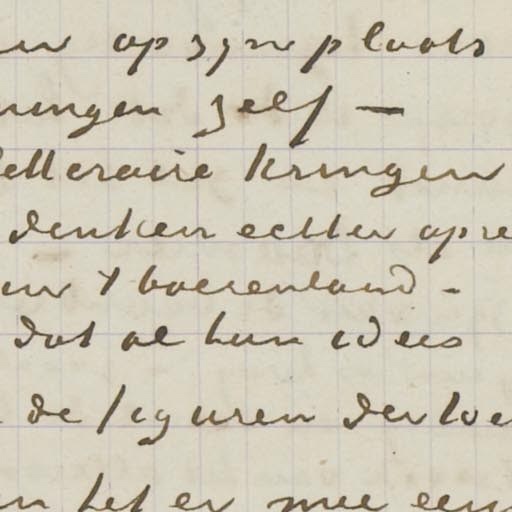 op zyne plaats
ningen zelf —
letteraire kringen
denken echter opre
't boerenland -
dat al hun idees
de figuren der boe
het er mee eens